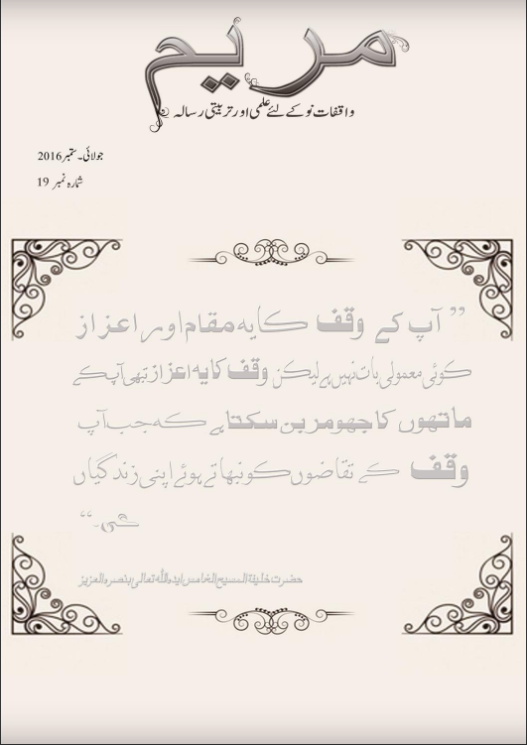 مریم
واقفات نو کے لئے علمی اور تربیتی رسالہ
جولائی۔ ستمبر 2016
شمارہ نمبر 19
” آپ کے وقف کا یہ مقام اور اعزاز
کوئی معمولی بات نہیں ہے لیکن وقف کا یہ اعزاز تبھی آپ کے
ماتھوں کا جھومر بن سکتا ہے کہ جب آپ
وقف کے تقاضوں کو نبھاتے ہوئے اپنی زندگیاں
گی۔“
حضرت خلیفۃ المسیح الخامس ایدہ اللہ تعالی بنصرہ العزیز